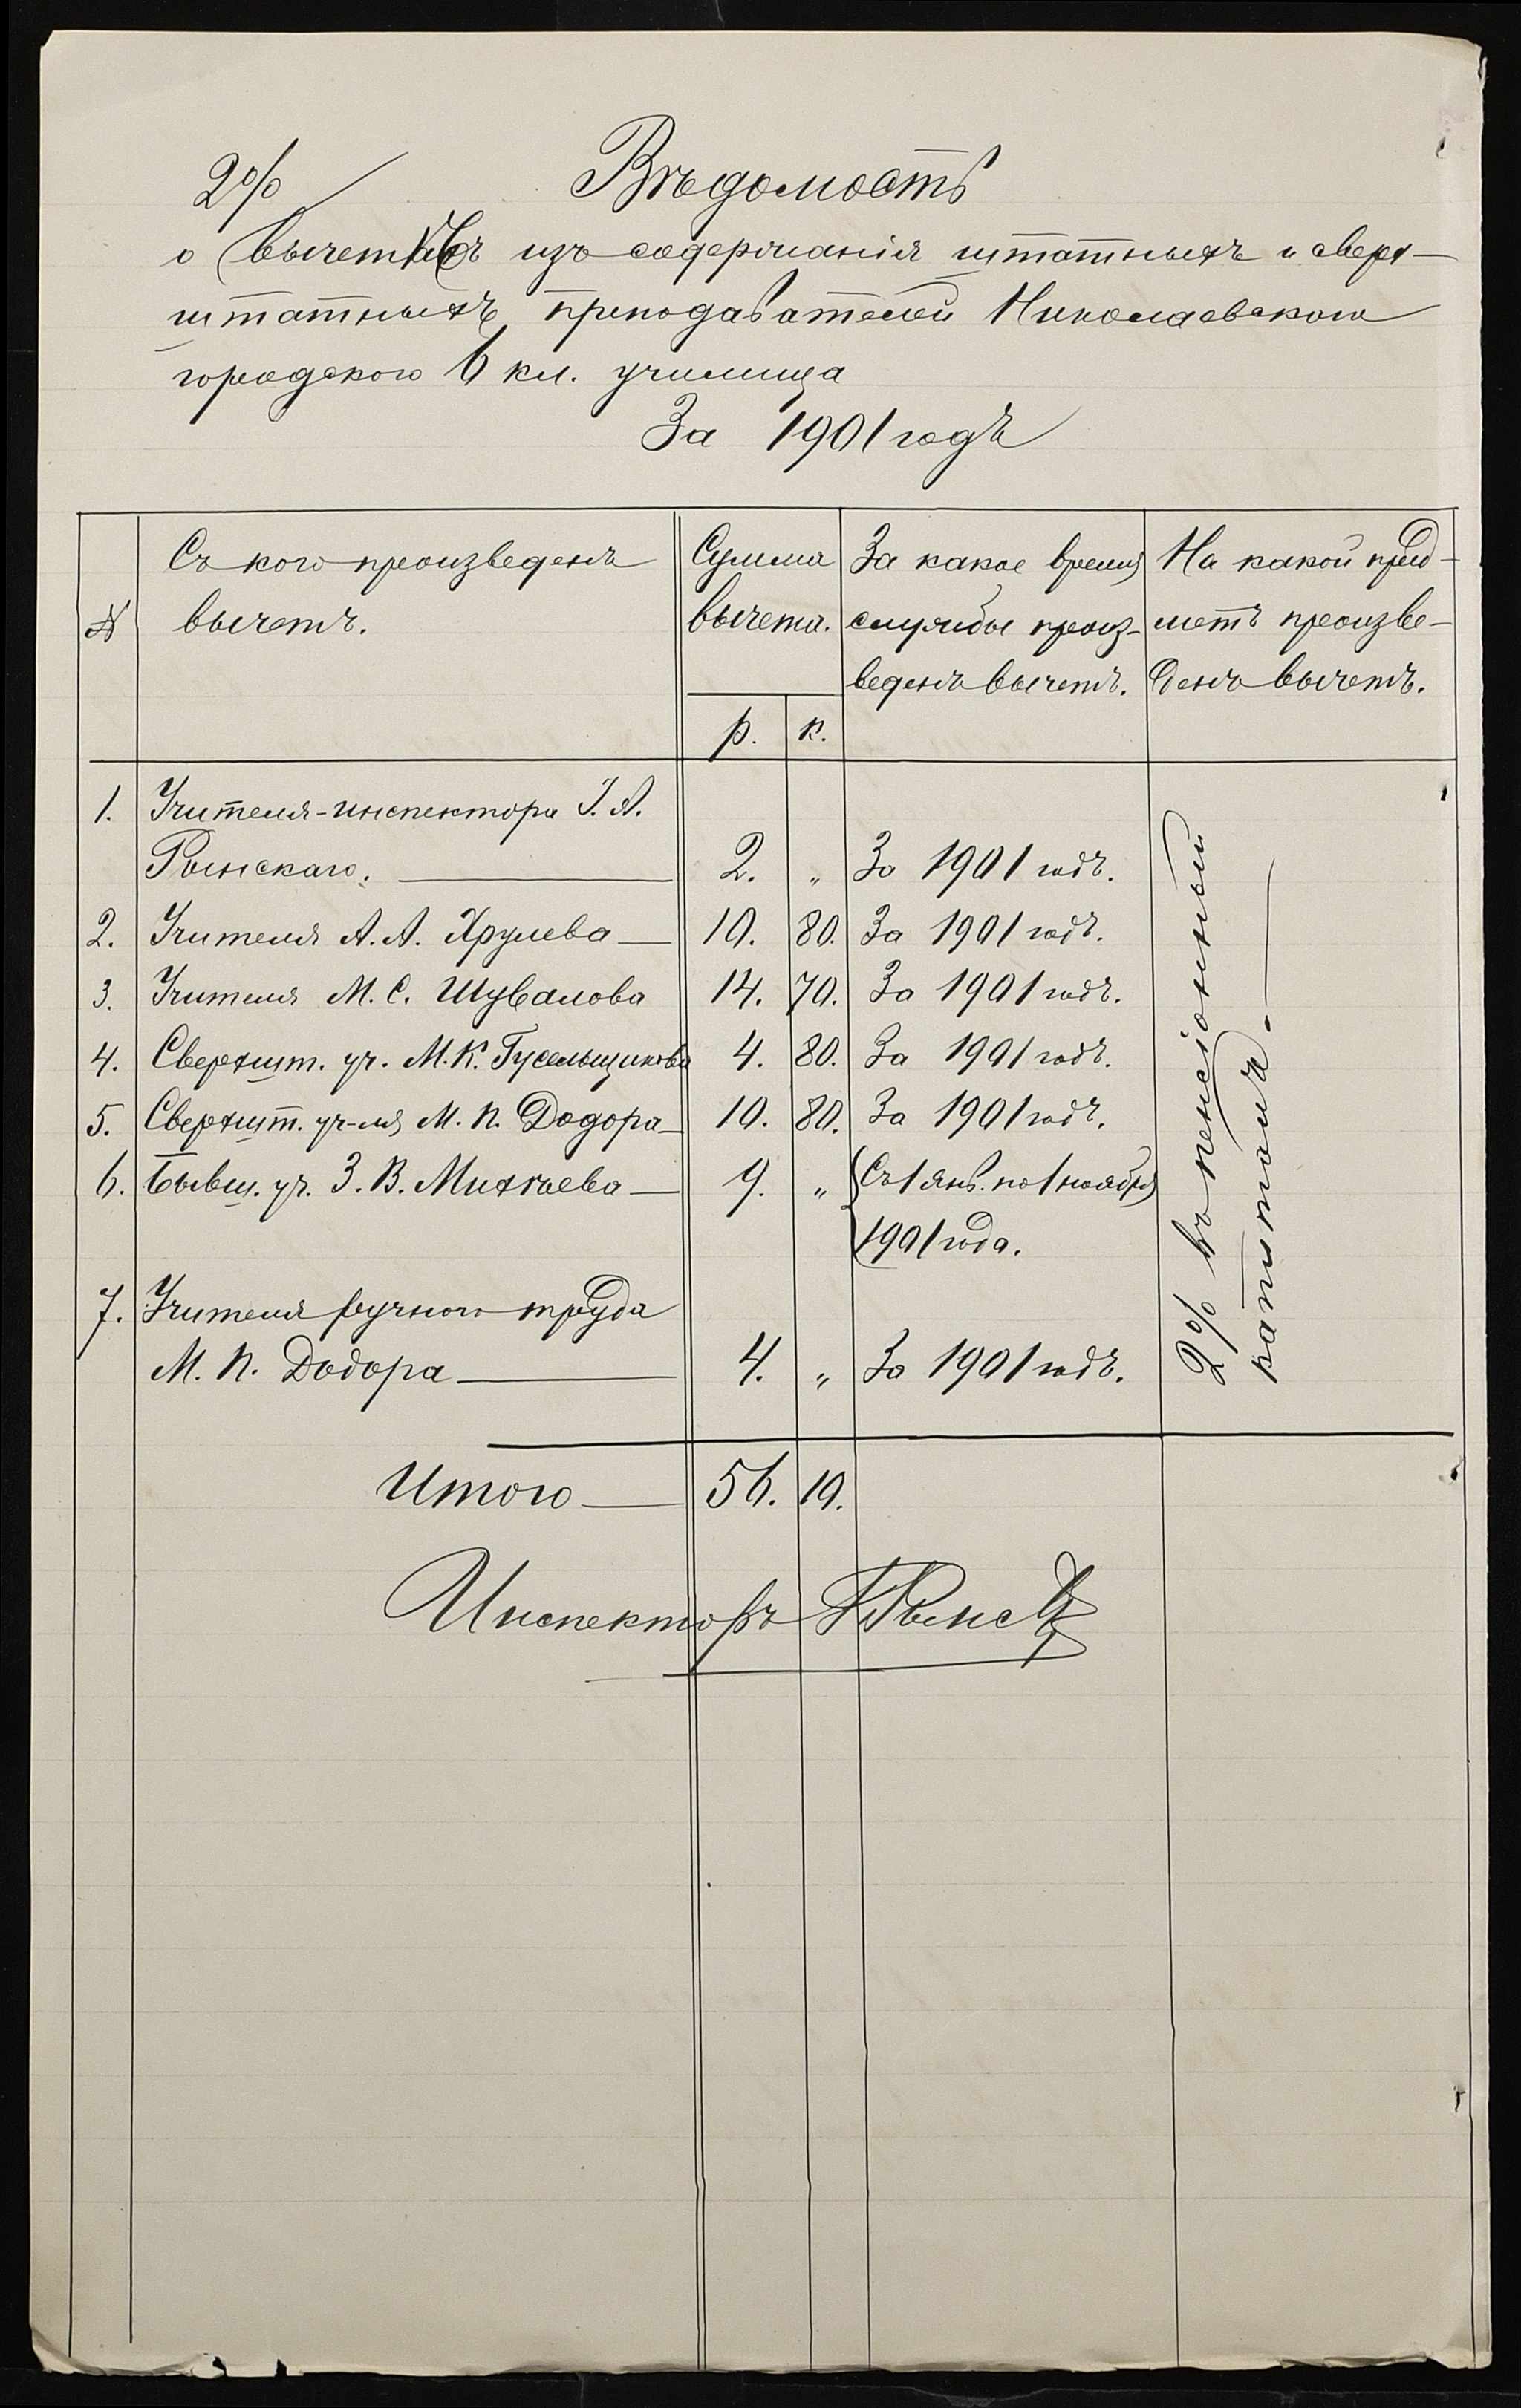 2%
Вѣдомость
о вычетахъ изъ содержанія штатныхъ и сверх-
штатныхъ преподавателей Николаевскаго
городскаго 6 кл. училища
За 1901 годъ
№
Съ кого произведенъ
вычетъ.
Сумма
вычета.
р. к.
За какое время
службы произ-
веденъ вычетъ.
На какой пред-
метъ произве-
денъ вычетъ.
1. Учителя-инспектора І. А.
Рынскаго. 2. „ За 1901 годъ.
2. Учителя А. А. Хрулева 10. 80. За 1901 годъ.
3. Учителя М. С. Шувалова 14. 70. За 1901 годъ.
4. Сверхшт. уч. М. К. Гусельщикова 4. 80. За 1901 годъ.
5. Сверхшт. уч-ля М. П. Додора 10. 80. За 1901 годъ.
6. Бывш. уч. З. В. Михеева 9. „ Съ 1 янв. по 1 ноября
1901 года.
7. Учителя ручного труда
М. П. Додора 4. „ За 1901 годъ.
2% въ пенсіонный
капиталъ.
Итого 56. 10.
Инспекторъ І Рынск